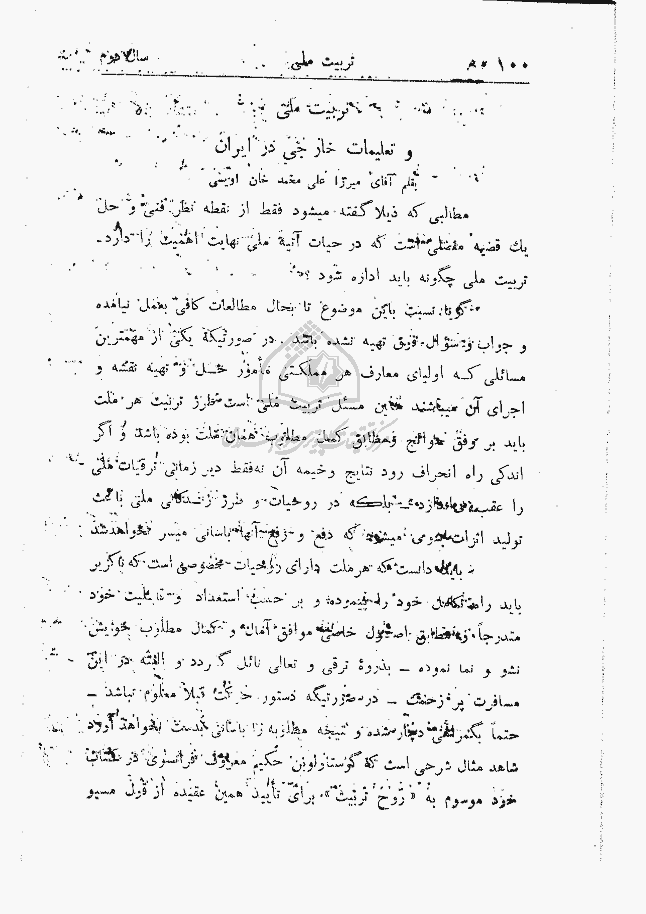 ۱۰۰ تربیت ملی سال دوم
تربیت ملی
و تعلیمات خارجی در ایران
بقلم آقای میرزا علی محمد خان اویسی
مطالبی که ذیلا گفته میشود فقط از نقطه نظر فنی و حل
یك قضیه مفضلی است که در حیات آتیة ملی نهایت اهمیت را دارد ـ
تربیت ملی چگونه باید اداره شود ؟
گویا نسبت باین موضوع تا بحال مطالعات کافی بعمل نیامده
و جواب و سئوال دقیق تهیه نشده باشد . در صورتیکه یکی از مهمترین
مسائلی کــه اولیای معارف هر مملکتی مأمور حــل و تهیه نقشه و
اجرای آن میباشند همین مسئل تربیت ملی است طرز تربیت هر ملت
باید بر توفق حوائج و مطابق کمال مطلوب همان ملت بوده باشد و اگر
اندکی راه انحراف رود نتایج وخیمه آن نه‌فقط دیر زمانی ترقیات ملی
را عقب میاندازد ـ بلـکه در روحیات و طرز زنـدگانی ملی باعث
تولید اثرات میشود که دفع و رفع آنها بآسانی میسر نخواهد شد
باید دانست که هر ملت دارای روحیات مخصوصی است که ناگزیر
باید راه تکامل خود را پیموده و بر حسب استعداد و قابلیت خود
متدرجاً و مطابق اصول خاصی موافق آمال و کمال مطلوب خویش
نشو و نما نموده ــ بذروة ترقی و تعالی نائل گردد و البته در این
مسافرت پر زحمت ــ در صورتیکه دستور حرکت قبلا معلوم نباشد ــ
حتماً بگمراهی دچار شده و نتیجه مطلوبه را بآسانی بدست نخواهد آورد
شاهد مثال شرحی است که گوستاولوبن حکیم معروف فرانسوی در کتاب
خود موسوم به « روح تربیت » برای تأیید همین عقیده از قول مسیو